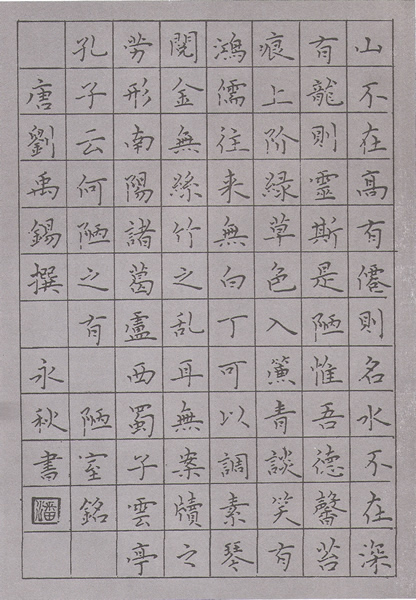 山不在高有僊則名水不在深
有龍則靈斯是陋惟吾德馨苔
痕上阶緑草色入簾青談笑有
鴻儒往来無白丁可以調素琴
閱金無絲竹之乱耳無案牘之
勞形南陽諸葛盧西蜀子雲亭
孔子云何陋之有 陋室銘
唐劉禹錫撰 永秋書 潘